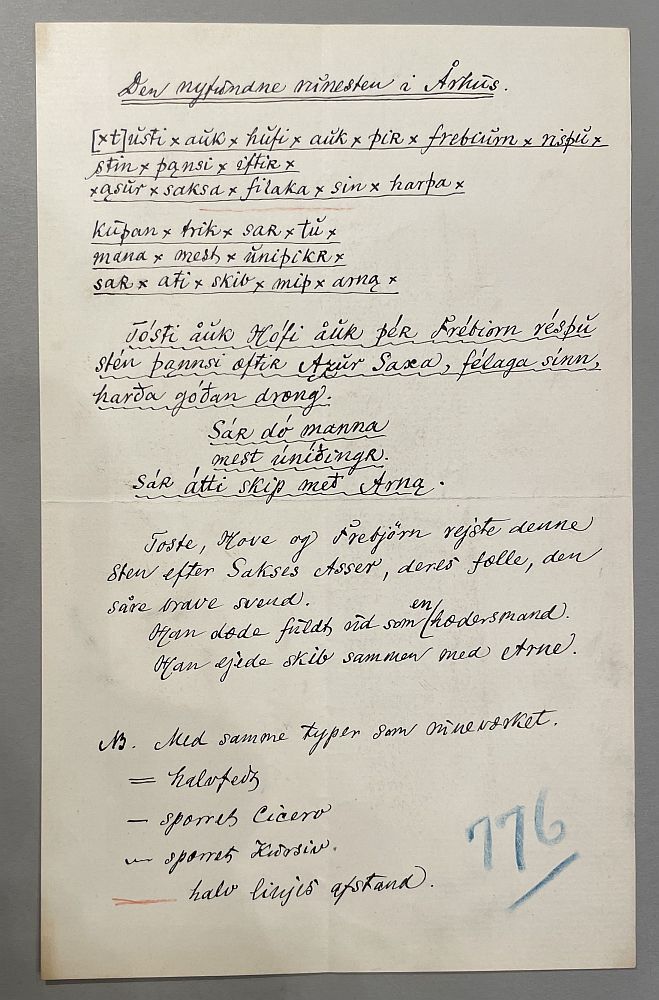 Den nyfundne runesten i Århus.
[×t]usti × auk × hufi × auk × þiʀ × frebiurn × risþu ×
stin × þąnsi × eftiʀ ×
× ąsur × saksa × filaka × sin × harþa ×
kuþan × trik × saʀ × tu ×
mana × mest × uniþikʀ ×
saʀ × ati × skib × miþ × arną ×
Tósti áuk Hófi áuk þéʀ Frébiorn résþu
stén þąnnsi æftiʀ Ązur Saxa, félaga sinn,
harða góðan dræng.
Sáʀ dó manna
mest úníðingʀ.
Sáʀ átti skip með Árną.
Toste, Hove og Frebjörn rejste denne
sten efter Sakses Asser, deres fælle, den
såre brave svend.
Han døde fuldt ud som en hædersmand.
Han ejede skib sammen med Arne.
NB. Med samme typer som runeværket.
= halvfedt
— sporret Cicero
~ sporret Kursiv.
— halv linjes afstand.
776